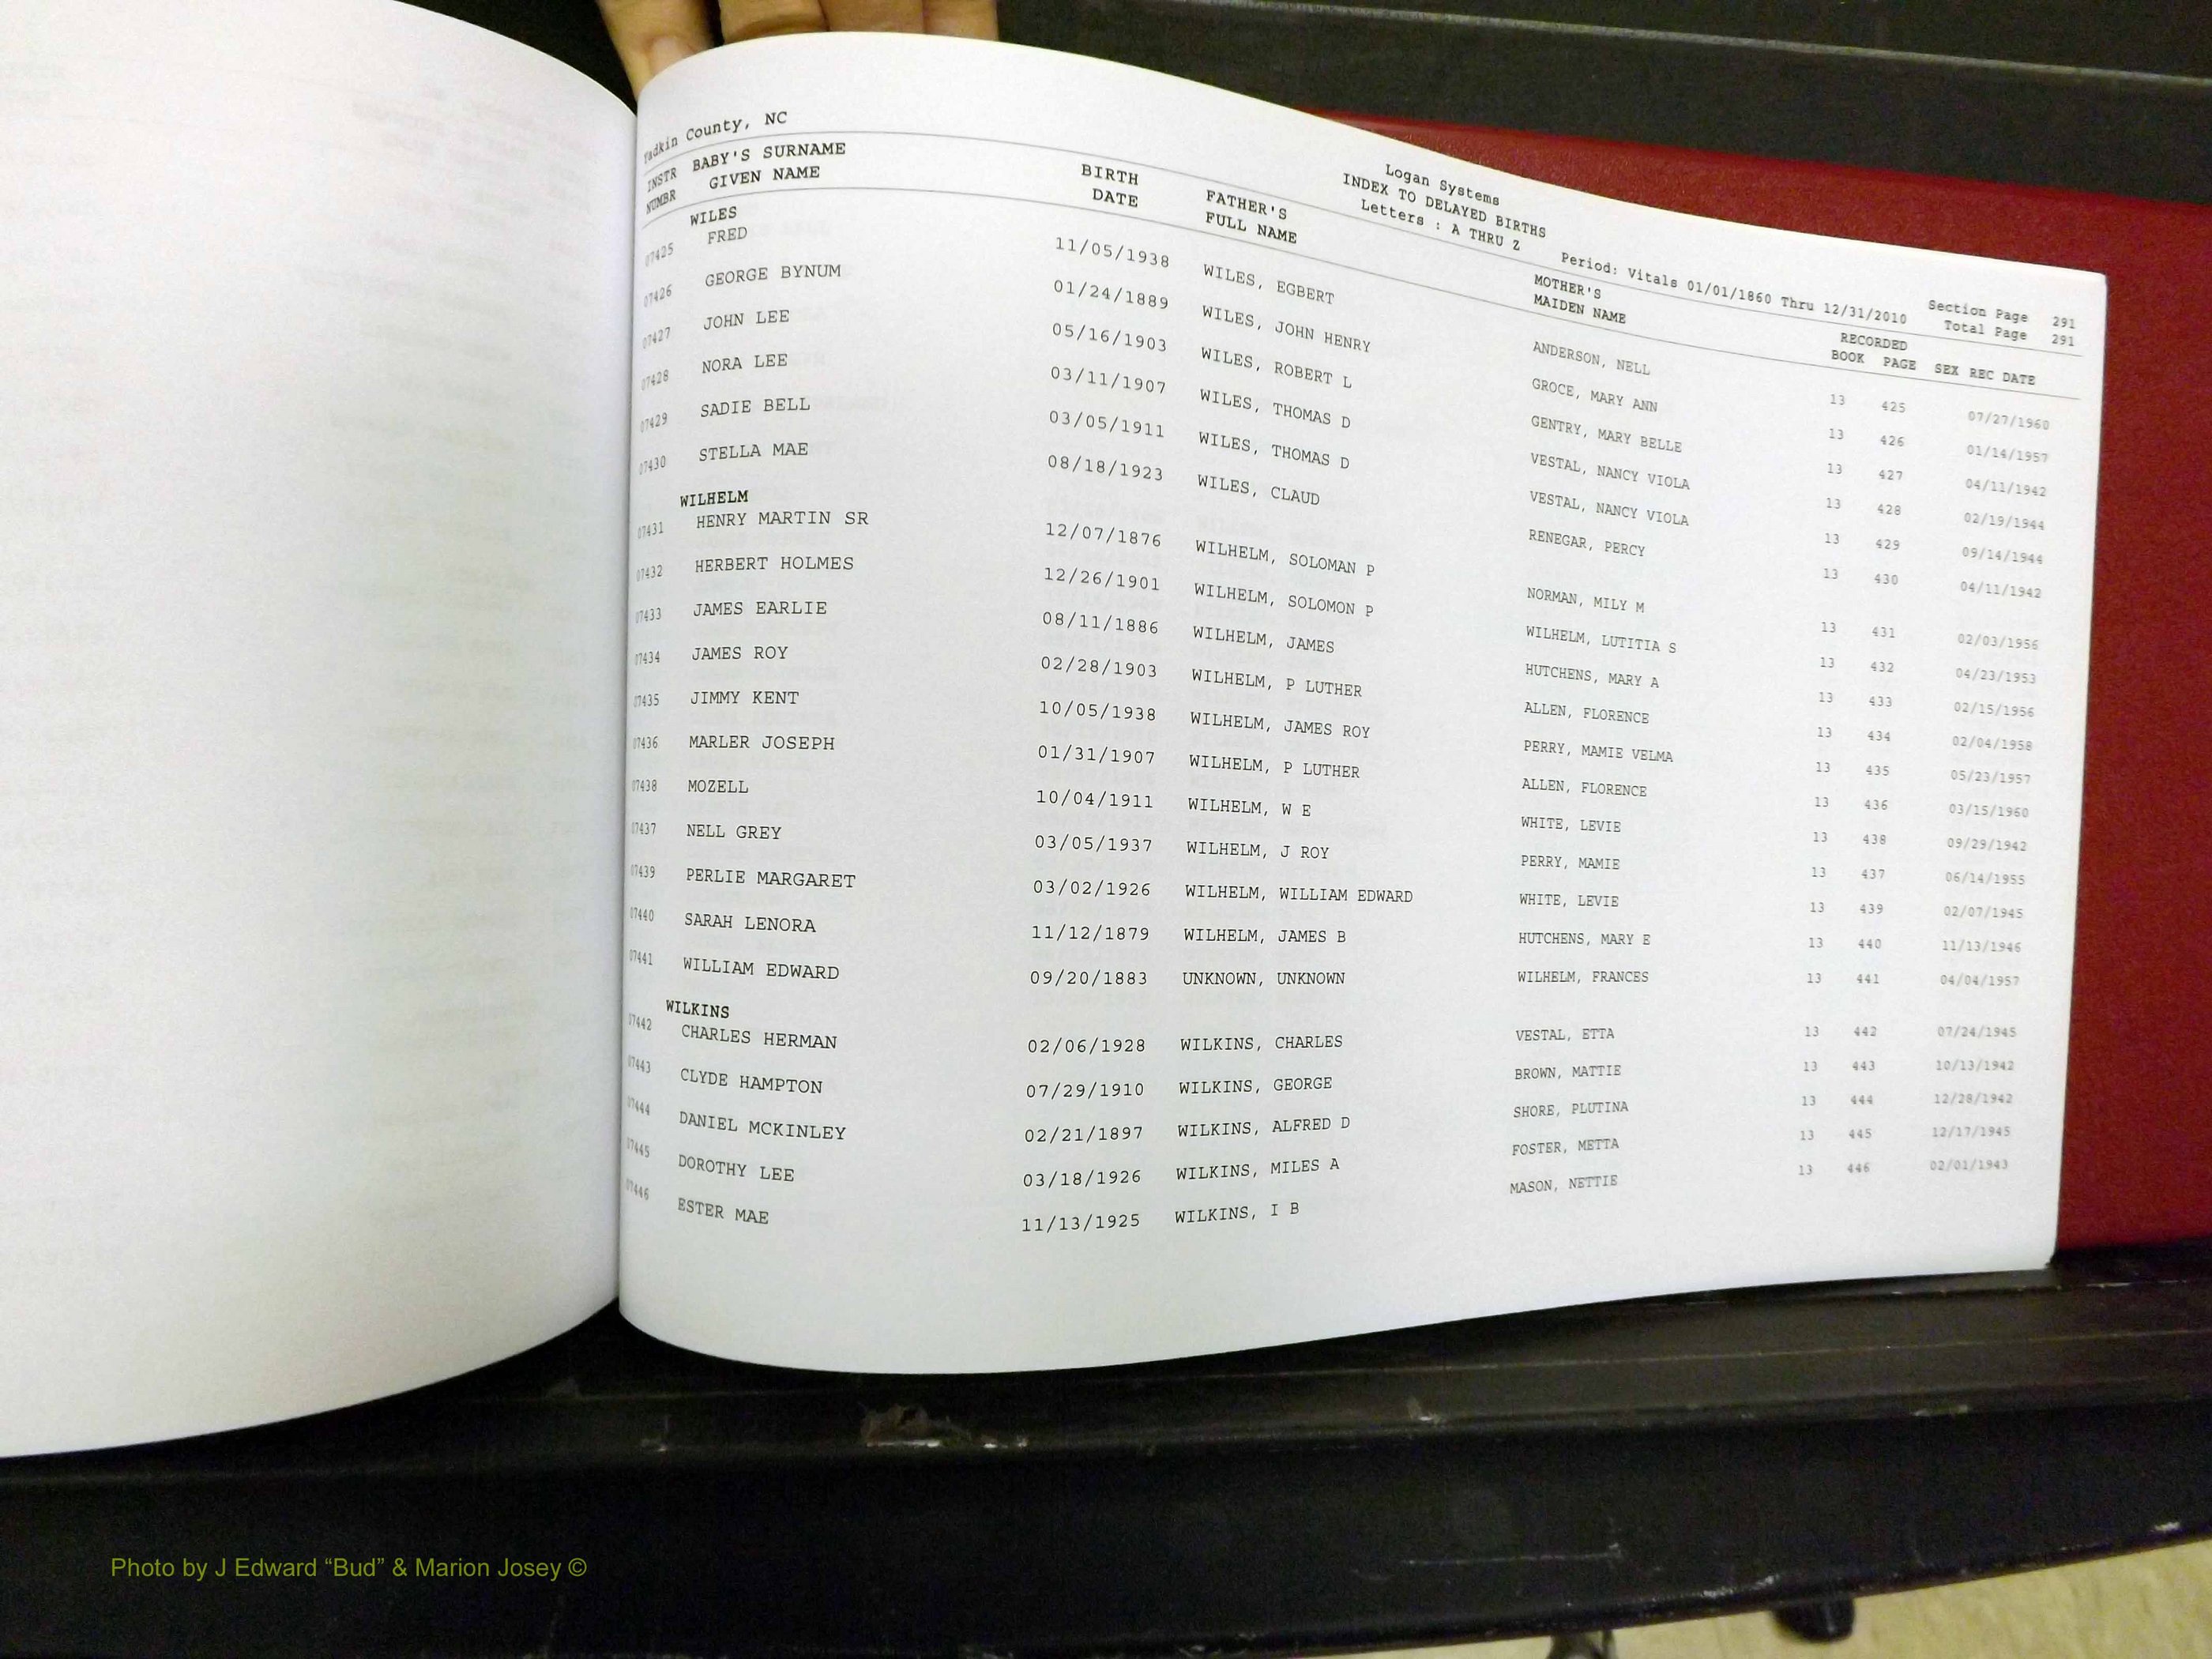 Yadkin County, NC
Logan Systems
INDEX TO DELAYED BIRTHS
Letters : A THRU Z
Period: Vitals 01/01/1860 Thru 12/31/2010
Section Page 291
Total Page 291
INSTR BABY'S SURNAME BIRTH FATHER'S MOTHER'S RECORDED
NUMBR GIVEN NAME DATE FULL NAME MAIDEN NAME BOOK PAGE SEX REC DATE
WILES
07425 FRED 11/05/1938 WILES, EGBERT ANDERSON, NELL 13 425 07/27/1960
07426 GEORGE BYNUM 01/24/1889 WILES, JOHN HENRY GROCE, MARY ANN 13 426 01/14/1957
07427 JOHN LEE 05/16/1903 WILES, ROBERT L GENTRY, MARY BELLE 13 427 04/11/1942
07428 NORA LEE 03/11/1907 WILES, THOMAS D VESTAL, NANCY VIOLA 13 428 02/19/1944
07429 SADIE BELL 03/05/1911 WILES, THOMAS D VESTAL, NANCY VIOLA 13 429 09/14/1944
07430 STELLA MAE 08/18/1923 WILES, CLAUD RENEGAR, PERCY 13 430 04/11/1942
WILHELM
07431 HENRY MARTIN SR 12/07/1876 WILHELM, SOLOMAN P NORMAN, MILY M 13 431 02/03/1956
07432 HERBERT HOLMES 12/26/1901 WILHELM, SOLOMON P WILHELM, LUTITIA S 13 432 04/23/1953
07433 JAMES EARLIE 08/11/1886 WILHELM, JAMES HUTCHENS, MARY A 13 433 02/15/1956
07434 JAMES ROY 02/28/1903 WILHELM, P LUTHER ALLEN, FLORENCE 13 434 02/04/1958
07435 JIMMY KENT 10/05/1938 WILHELM, JAMES ROY PERRY, MAMIE VELMA 13 435 05/23/1957
07436 MARLER JOSEPH 01/31/1907 WILHELM, P LUTHER ALLEN, FLORENCE 13 436 03/15/1960
07438 MOZELL 10/04/1911 WILHELM, W E WHITE, LEVIE 13 438 09/29/1942
07437 NELL GREY 03/05/1937 WILHELM, J ROY PERRY, MAMIE 13 437 06/14/1955
07439 PERLIE MARGARET 03/02/1926 WILHELM, WILLIAM EDWARD WHITE, LEVIE 13 439 02/07/1945
07440 SARAH LENORA 11/12/1879 WILHELM, JAMES B HUTCHENS, MARY E 13 440 11/13/1946
07441 WILLIAM EDWARD 09/20/1883 UNKNOWN, UNKNOWN WILHELM, FRANCES 13 441 04/04/1957
WILKINS
07442 CHARLES HERMAN 02/06/1928 WILKINS, CHARLES VESTAL, ETTA 13 442 07/24/1945
07443 CLYDE HAMPTON 07/29/1910 WILKINS, GEORGE BROWN, MATTIE 13 443 10/13/1942
07444 DANIEL MCKINLEY 02/21/1897 WILKINS, ALFRED D SHORE, PLUTINA 13 444 12/28/1942
07445 DOROTHY LEE 03/18/1926 WILKINS, MILES A FOSTER, METTA 13 445 12/17/1945
07446 ESTER MAE 11/13/1925 WILKINS, I B MASON, NETTIE 13 446 02/01/1943
Photo by J Edward “Bud” & Marion Josey ©